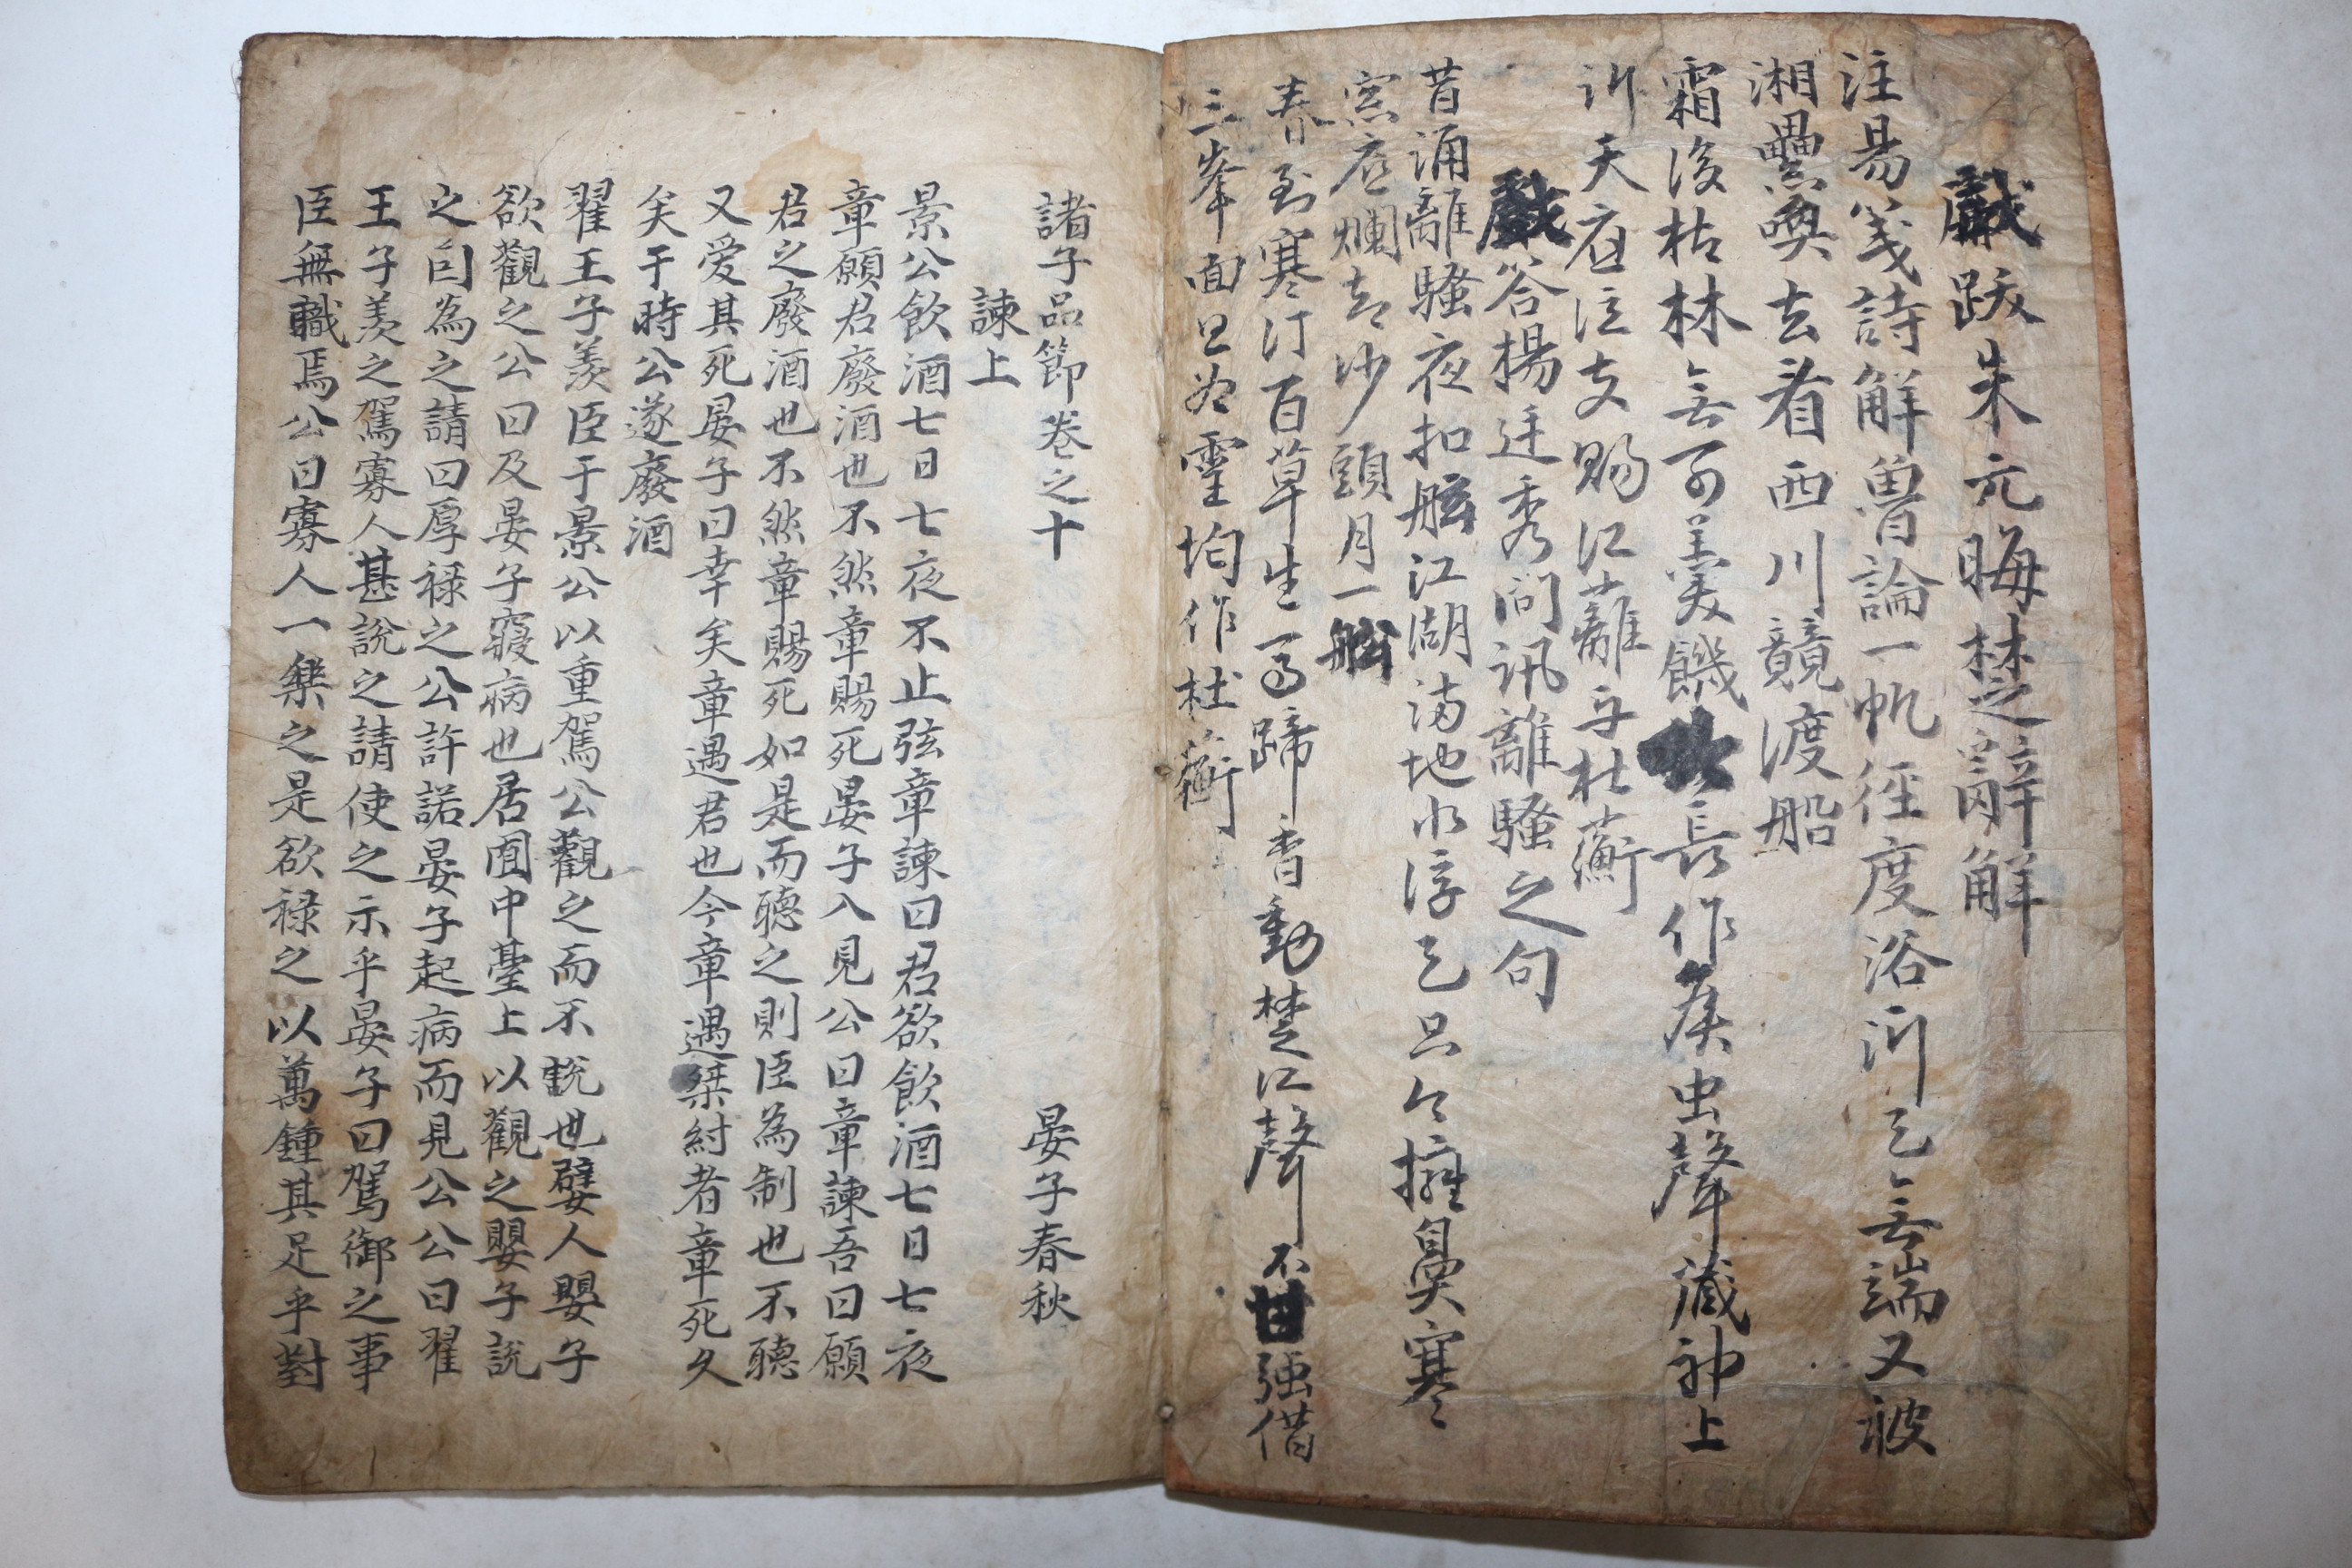 戲跋朱元晦楚辭解
注易箋詩解魯論一帆徑度浴沂天無端又被
湘纍喚去看西川競渡船
霜後枯林無可羮饑吟長作候虫聲藏神上
訴天應泣支賜江蘺与杜蘅
戲答楊廷秀問訊離騷之句
昔誦離騷夜扣舷江湖滿地水浮天只今擁鼻寒
窓底爛却沙頭月一船
春到寒汀百草生馬蹄香動楚江聲不甘强借
三峯面且爲靈均作杜蘅
諸子品節卷之十
晏子春秋
諫上
景公飲酒七日七夜不止弦章諫曰君欲飲酒七日七夜
章願君廢酒也不然章賜死晏子入見公曰章諫吾曰願
君之廢酒也不然章賜死如是而聽之則臣為制也不聽
又愛其死晏子曰幸矣章遇君也今章遇桀紂者章死久
矣于時公遂廢酒
翟王子羨臣于景公以重駕公觀之而不說也嬖人嬰子
欲觀之公曰及晏子寢病也居囿中臺上以觀之嬰子說
之因為之請曰厚祿之公許諾晏子起病而見公公曰翟
王子羨之駕寡人甚說之請使之示乎晏子曰駕御之事
臣無職焉公曰寡人一樂之是欲祿之以萬鍾其足乎對